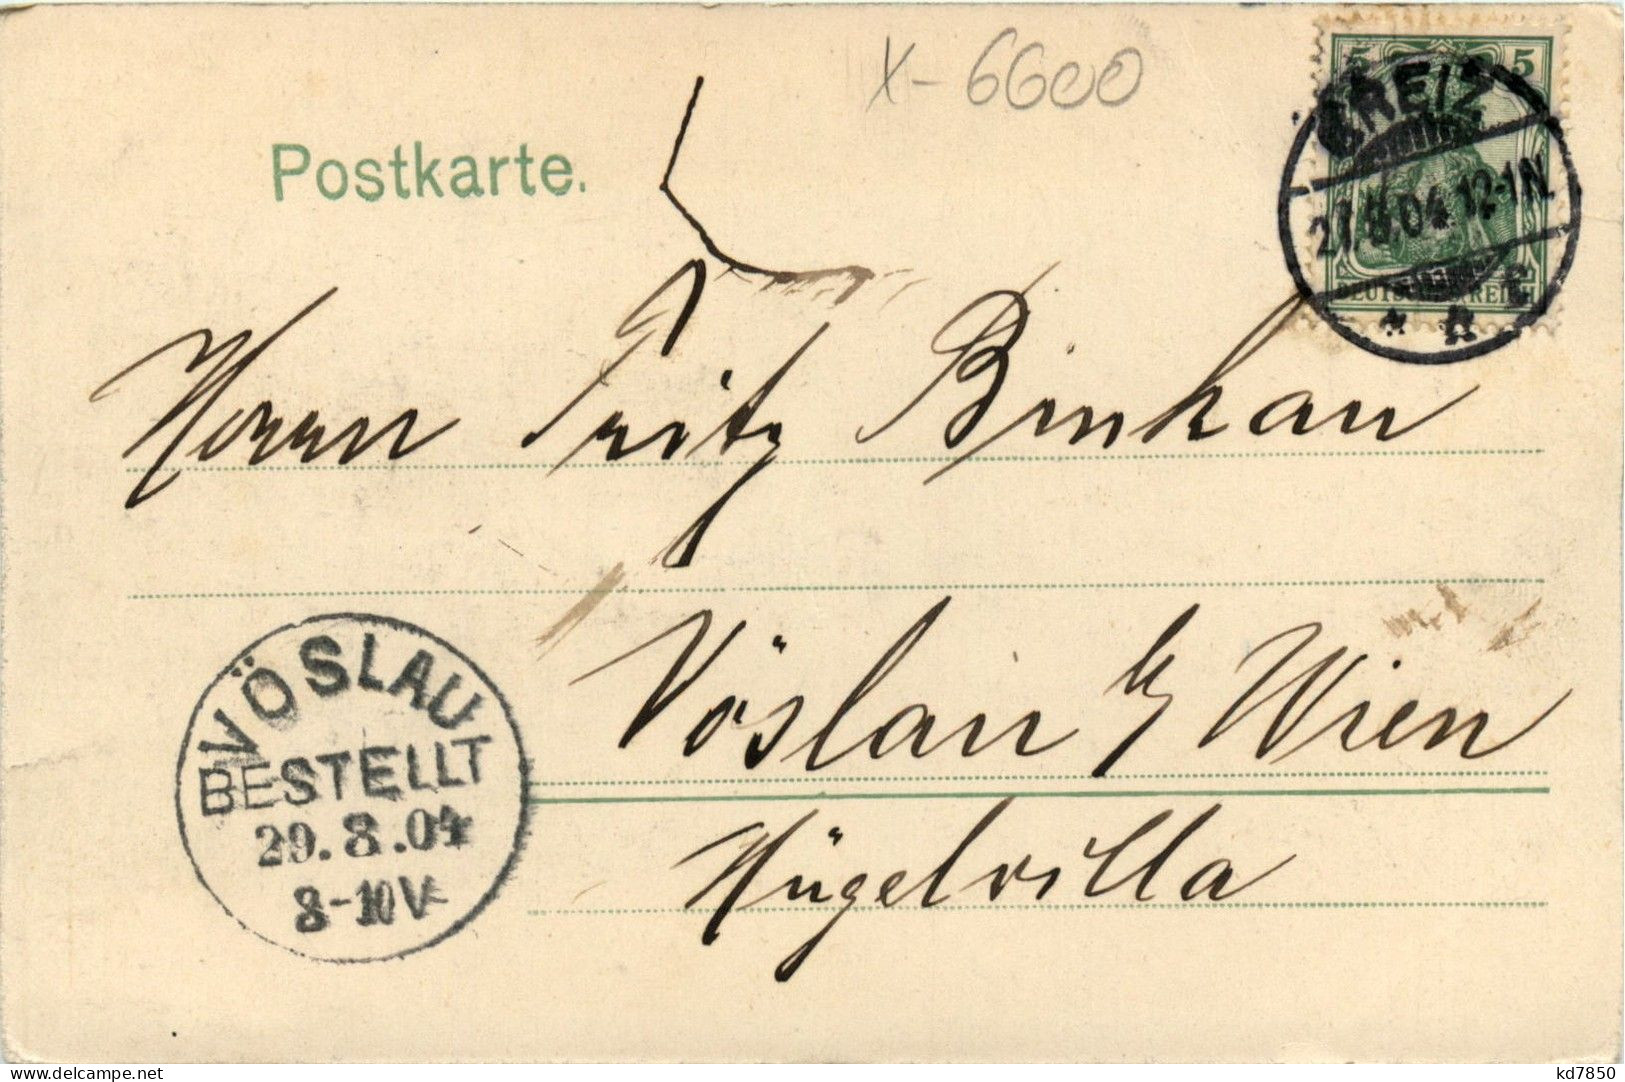 X-6600
Postkarte.
5 5
GREIZ
27.8.04.12-1N.
DEUTSCHES REICH
Herrn Fritz
VÖSLAU
BESTELLT
29.8.04
8-10V
Vöslau b/ Wien
Hügelvilla
kd7850